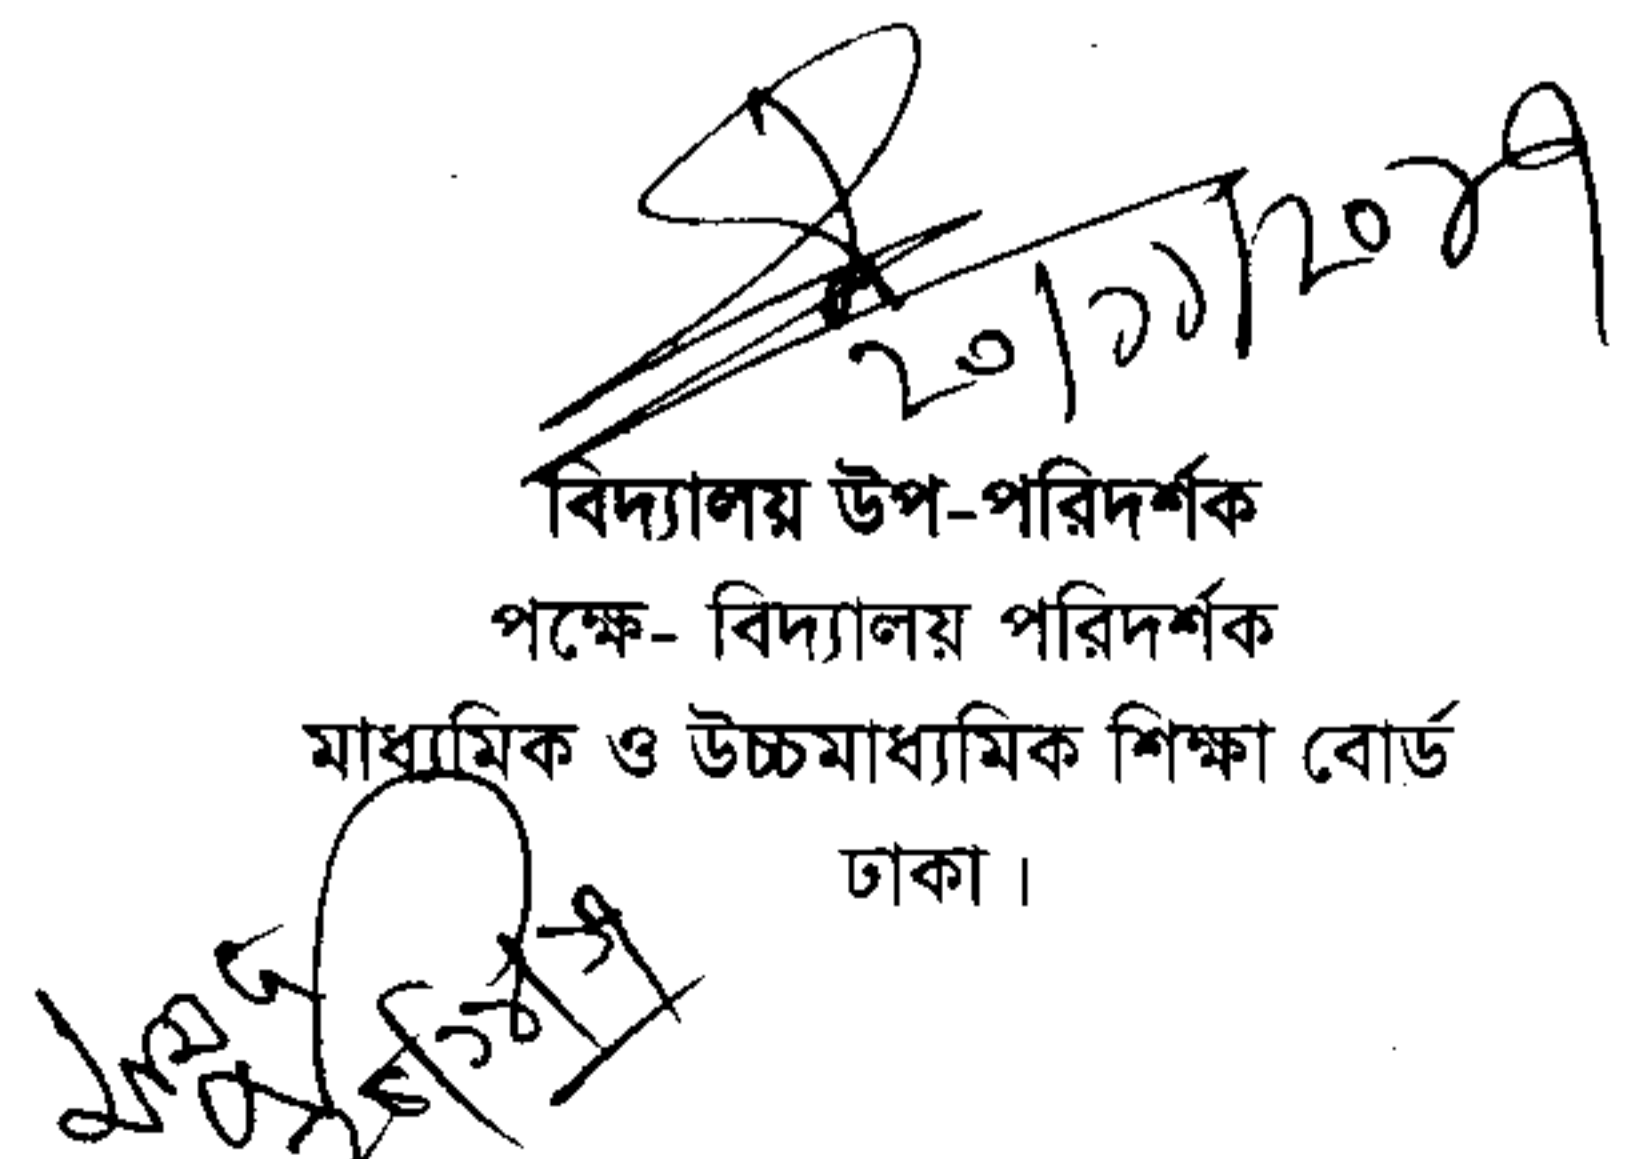 ২০/১১/২০১৭
বিদ্যালয় উপ-পরিদর্শক
পক্ষে- বিদ্যালয় পরিদর্শক
মাধ্যমিক ও উচ্চমাধ্যমিক শিক্ষা বোর্ড
ঢাকা ।